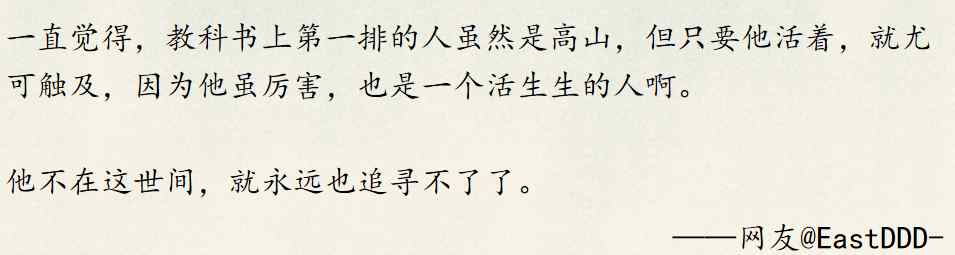 一直觉得，教科书上第一排的人虽然是高山，但只要他活着，就尤
可触及，因为他虽厉害，也是一个活生生的人啊。
他不在这世间，就永远也追寻不了了。
——网友@EastDDD-